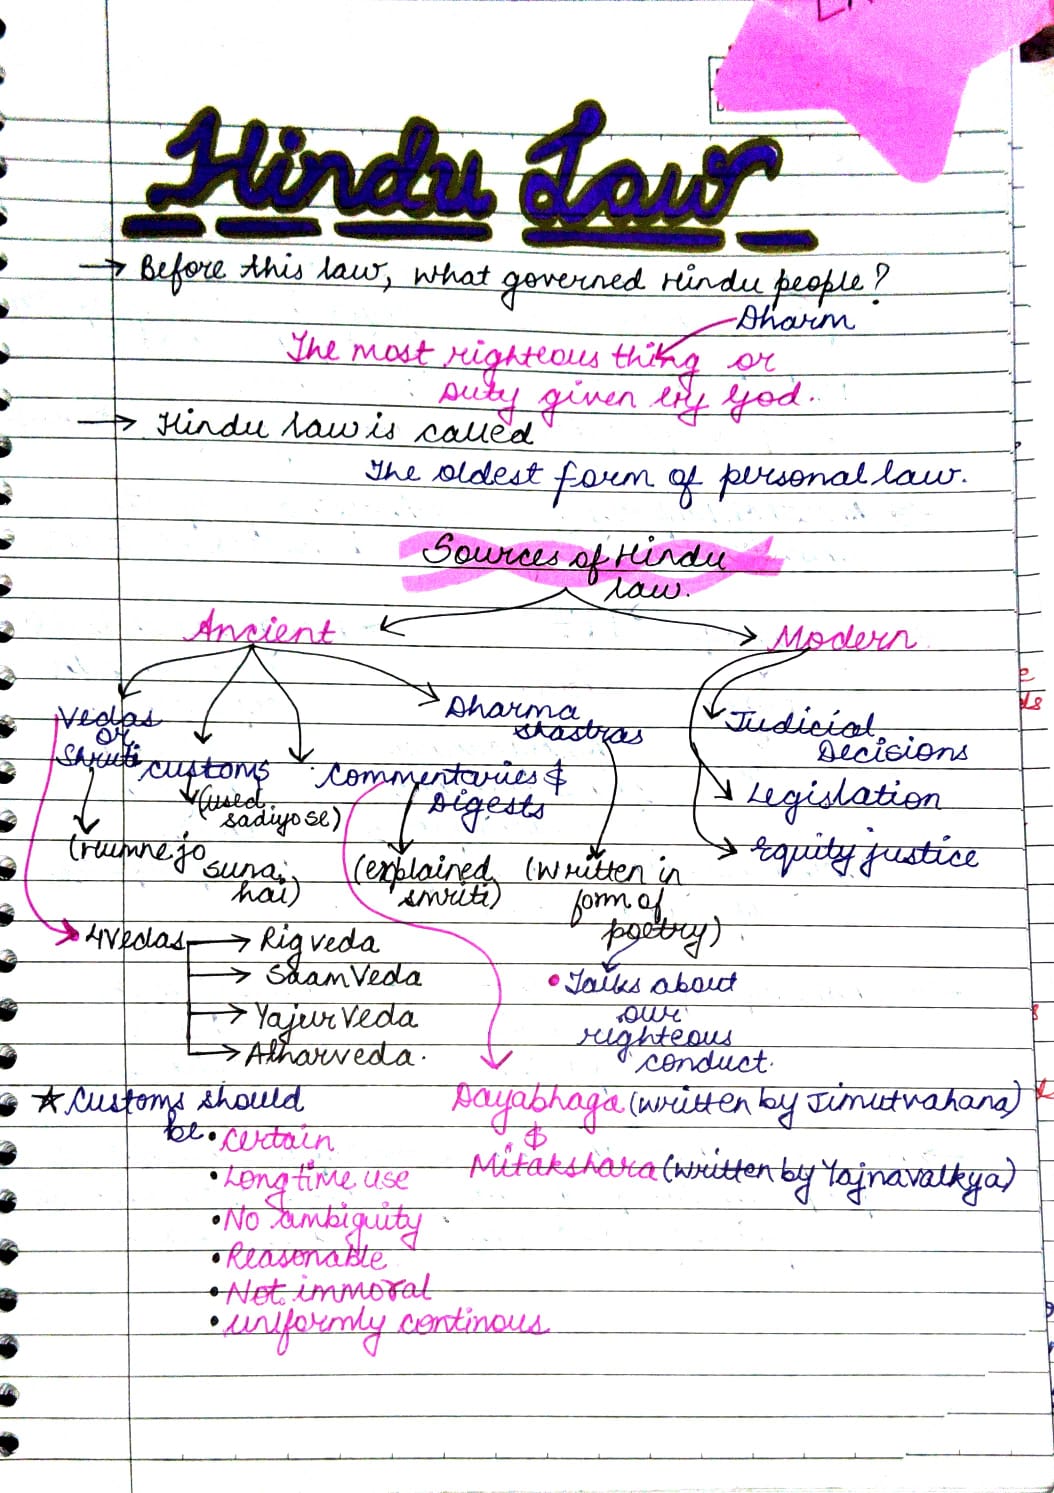 Hindu Law
→ Before this law, what governed Hindu people?
Dharm
The most righteous thing or
Duty given by God.
→ Hindu law is called
The oldest form of personal law.
Sources of Hindu
law.
Ancient
Modern
Vedas
or
Shruti
customs
(used
sadiyo se)
Commentaries &
Digests
Dharma
shastras
Judicial
Decisions
Legislation
Equity justice
jo
suna
hai)
(explained
smriti)
(written in
form of
poetry)
• Talks about
our
righteous
conduct.
4 Vedas
Rigveda
SaamVeda
Yajur Veda
Atharveda.
☆ Customs should
be • certain
• Long time use
• No ambiguity
• Reasonable
• Not immoral
• uniformly continous
Dayabhaga (written by Jimutvahana)
&
Mitakshara (written by Yajnavalkya)